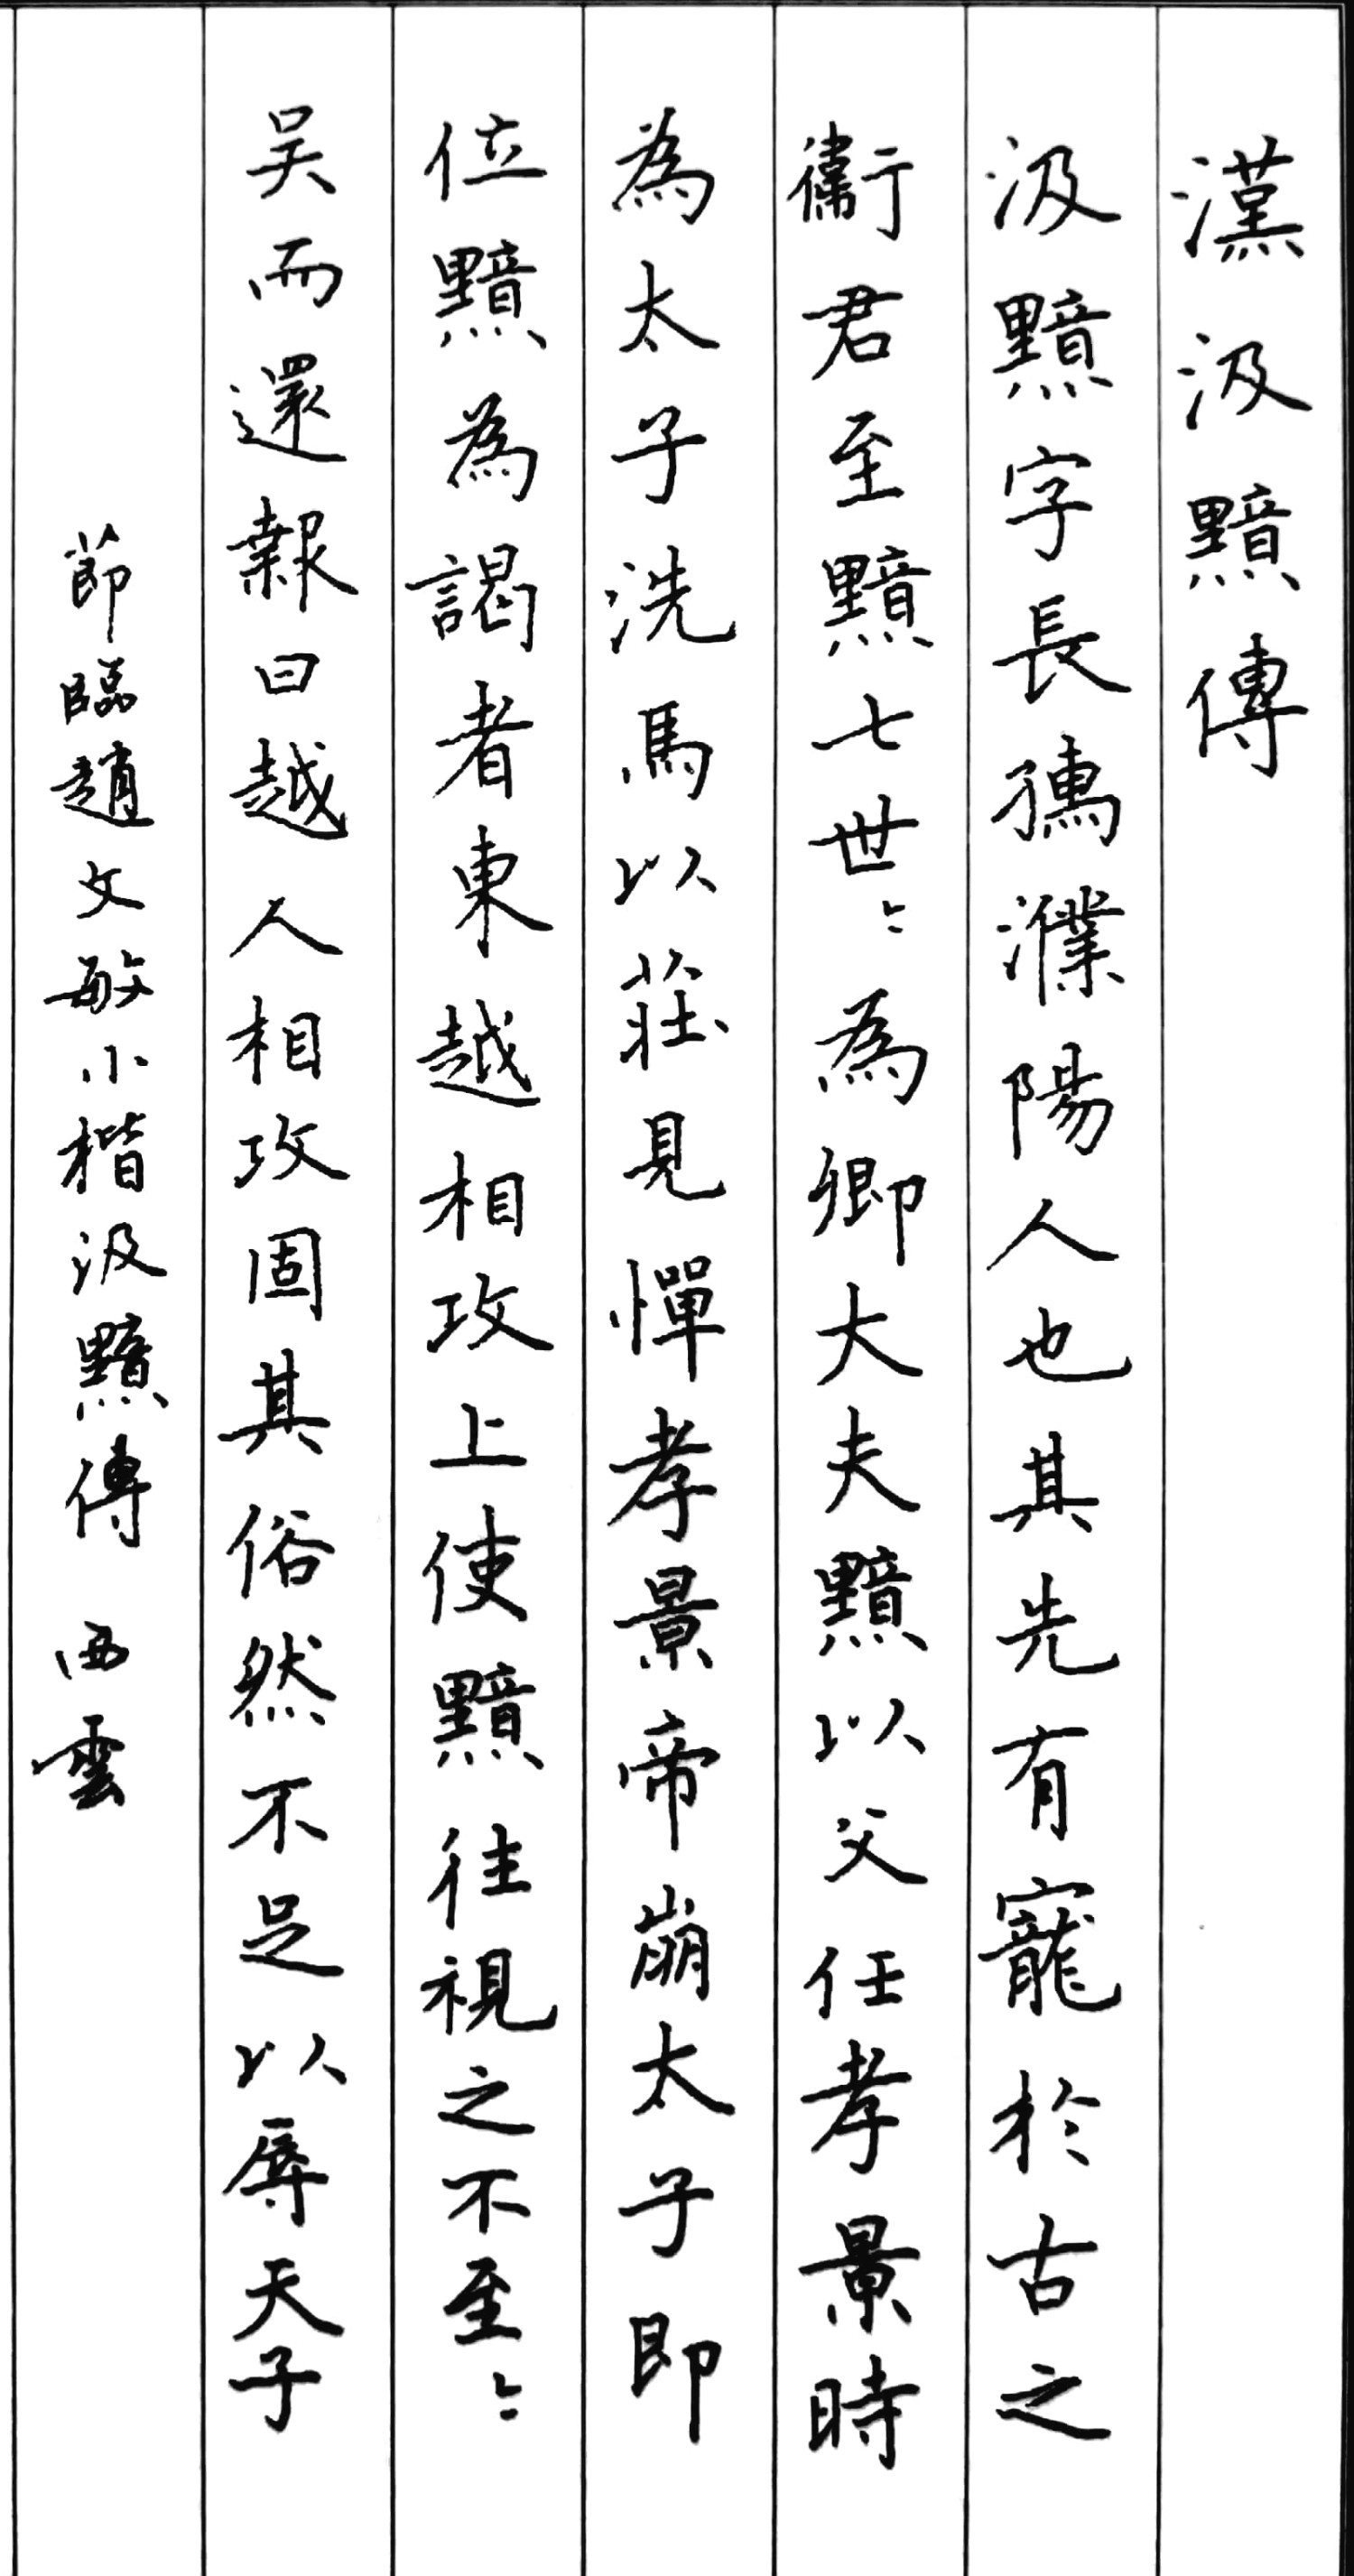 漢汲黯傳
汲黯字長孺濮陽人也其先有寵於古之
衛君至黯七世〻為卿大夫黯以父任孝景時
為太子洗馬以莊見憚孝景帝崩太子即
位黯為謁者東越相攻上使黯往視之不至〻
吳而還報曰越人相攻固其俗然不足以辱天子
節臨趙文敏小楷汲黯傳 西雲